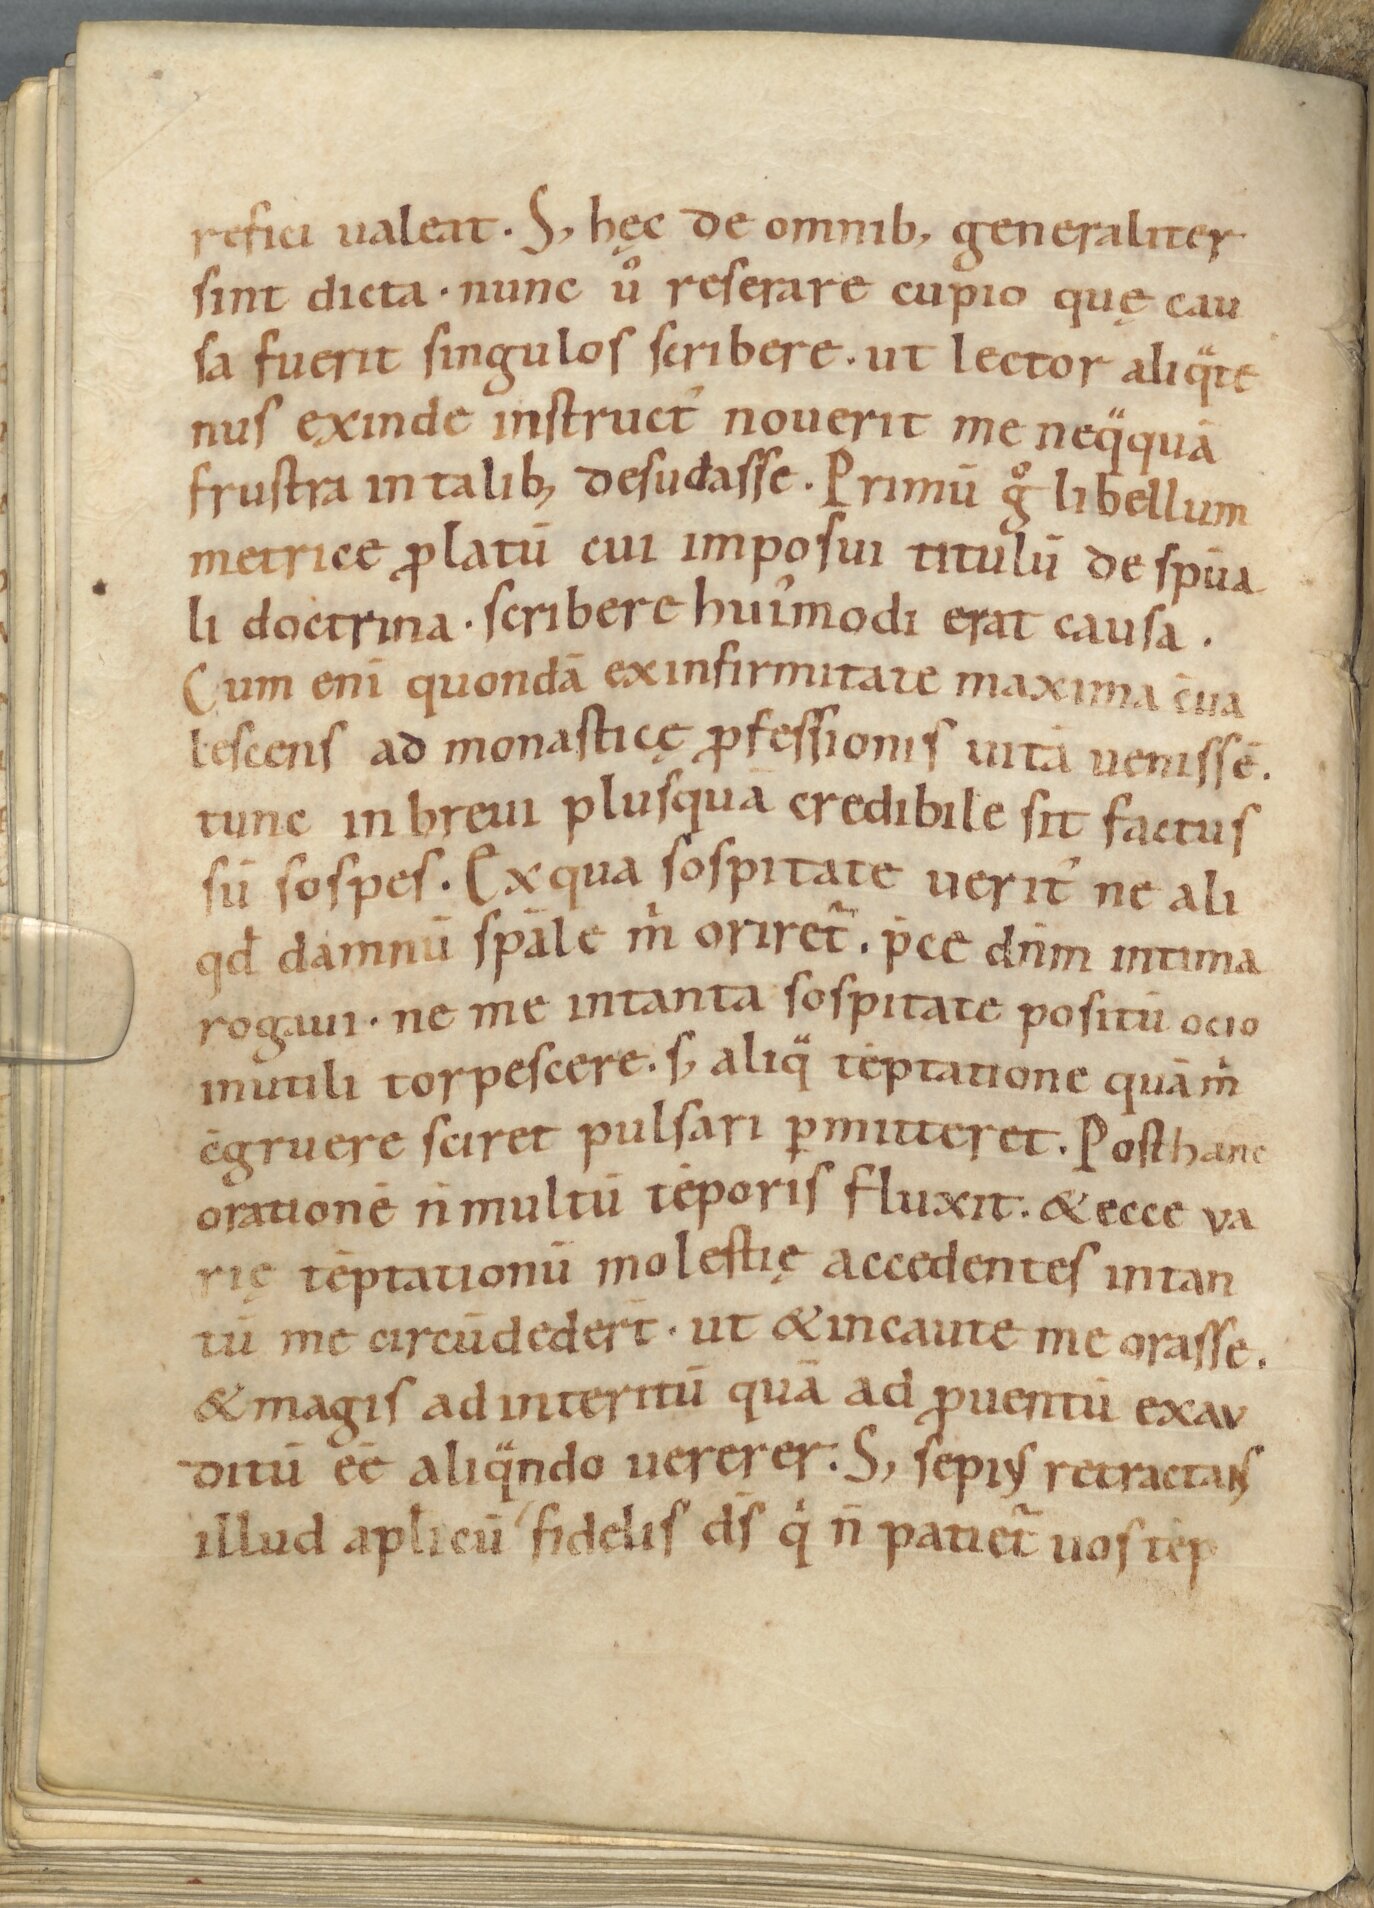 refici ualeat. S, hęc de omnib, generaliter
sint dicta · nunc uͦ reserare cupio quę cau
sa fuerit singulos scribere. ut lector aliqᷓte
nus exinde instruct᾿ nouerit me neqᷓquā
frustra in talib, desudasse. Primū gͦ libellum
metrice ꝓlatū cui imposui titulū de spūa
li doctrina · scribere hui᾿modi erat causa .
Cum enī quondā ex infirmitate maxima c̄ua
lescens ad monasticę ꝓfessionis uitā uenissē.
tunc in breui plusquā credibile sit factus
sū sospes. Ex qua sospitate uerit᾿ ne ali
qd̄ damnū spāle mͥ oriret᷑. p̄ce dn̄m intima
rogaui · ne me in tanta sospitate positū ocio
inutili torpescere. s, aliqᷓ tēptatione quā mͥ
c̄gruere sciret pulsari ꝑmitteret. Post hanc
orationē n̄ multū tēporis fluxit. & ecce va
rię tēptationū molestię accedentes in tan
tū me circūdeder̄t · ut & incaute me orasse.
& magis ad interitū quā ad ꝓuentū exau
ditū eē aliqᷓndo uererer. S, sepiꝰ retractans
illud aplicū fidelis ds̄ qͥ n̄ patiet᷑ uos tēp